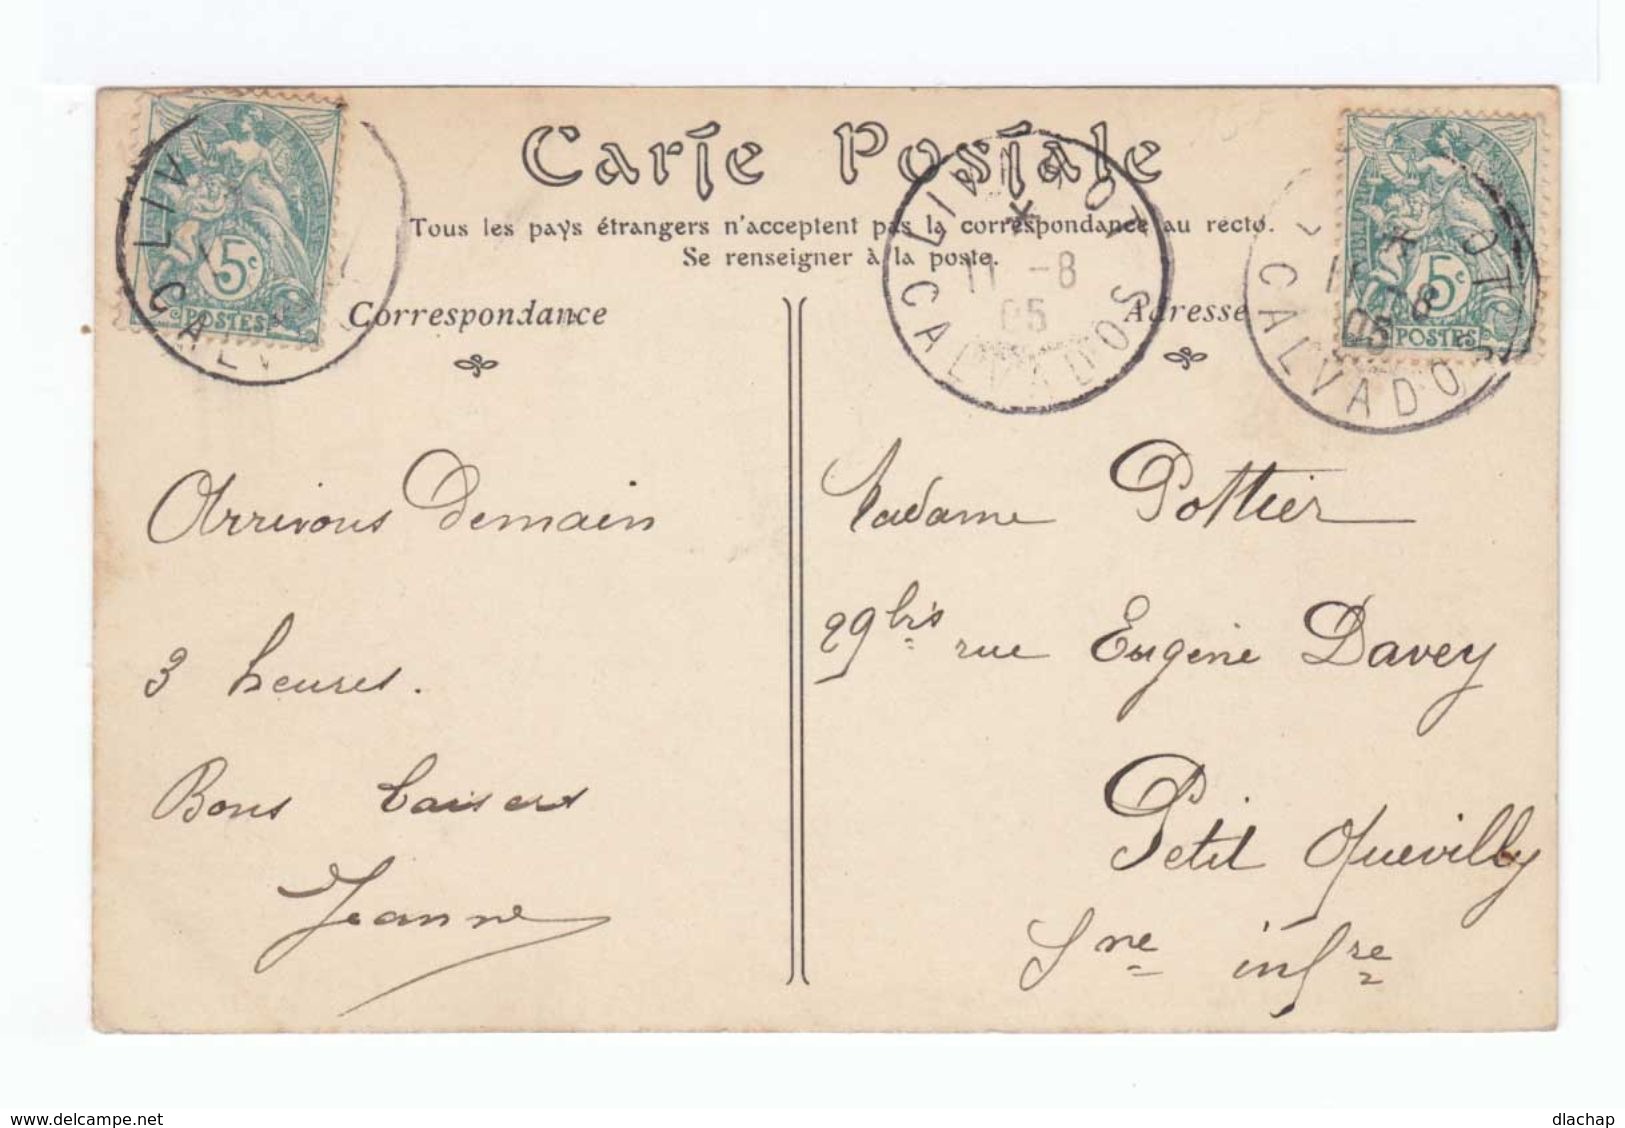 Carte Postale
Tous les pays étrangers n'acceptent pas la correspondance au recto.
Se renseigner à la poste.
Correspondance
Adresse
5c
POSTES
LIV
CALV
LIVAROT
11 -8
05
CALVADOS
5c
POSTES
OT
11 -8
05
CALVADOS
Arrivons Demain
3 heures.
Bons baisers
Jeanne
Madame Pottier
29 bis rue Eugène Davey
Petit Quevilly
Sne infre
www.delcampe.net
dlachap